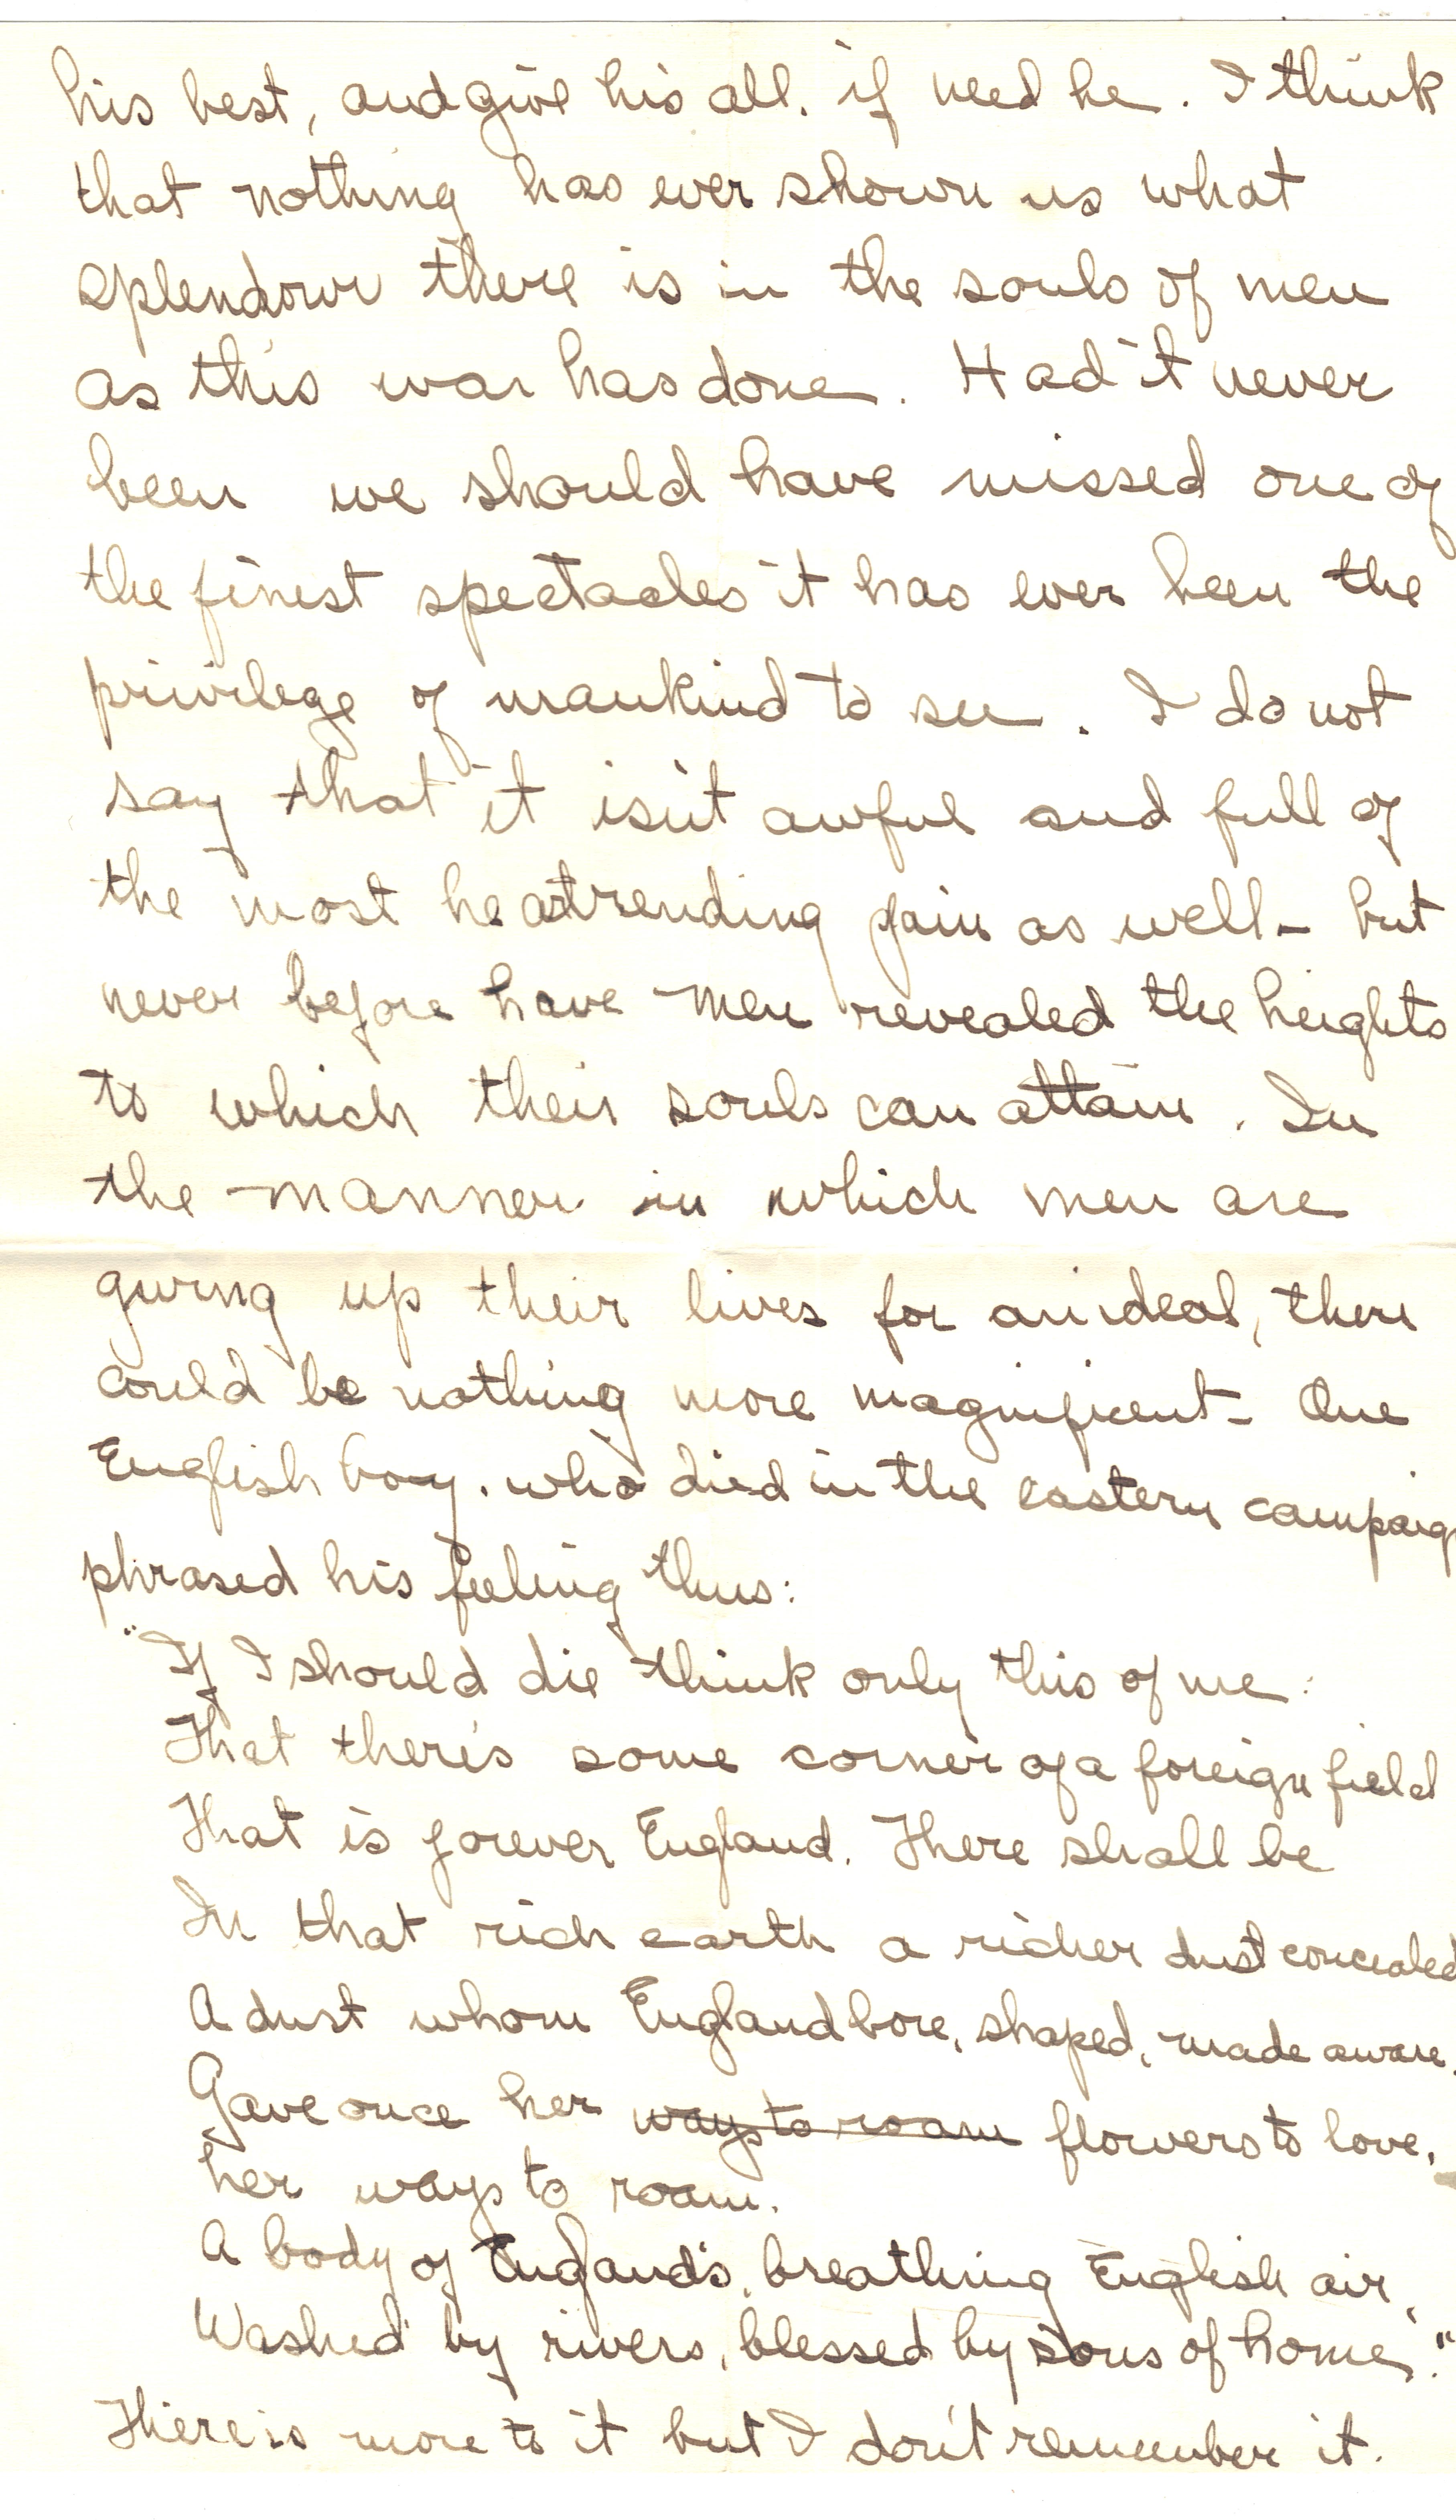 his best, and give his all, if need be. I think
that nothing has ever shown us what
splendour there is in the souls of men
as this war has done. Had it never
been we should have missed one of
the finest spectacles it has ever been the
privilege of mankind to see. I do not
say that it isn't awful and full of
the most heartrending pain as well – but
never before have men revealed the heights
to which their souls can attain. In
the manner in which men are
giving up their lives for an ideal, there
could be nothing more magnificent – One
English boy, who died in the eastern campaig
phrased his feeling thus:
"If I should die think only this of me:
That there's some corner of a foreign field
That is forever England. There shall be
In that rich earth a richer dust concealed
A dust whom England bore, shaped, made aware,
Gave once her ways to roam flowers to love,
her ways to roam.
A body of England's, breathing English air,
Washed by rivers, blessed by sons of home,"
There is more to it but I don't remember it.